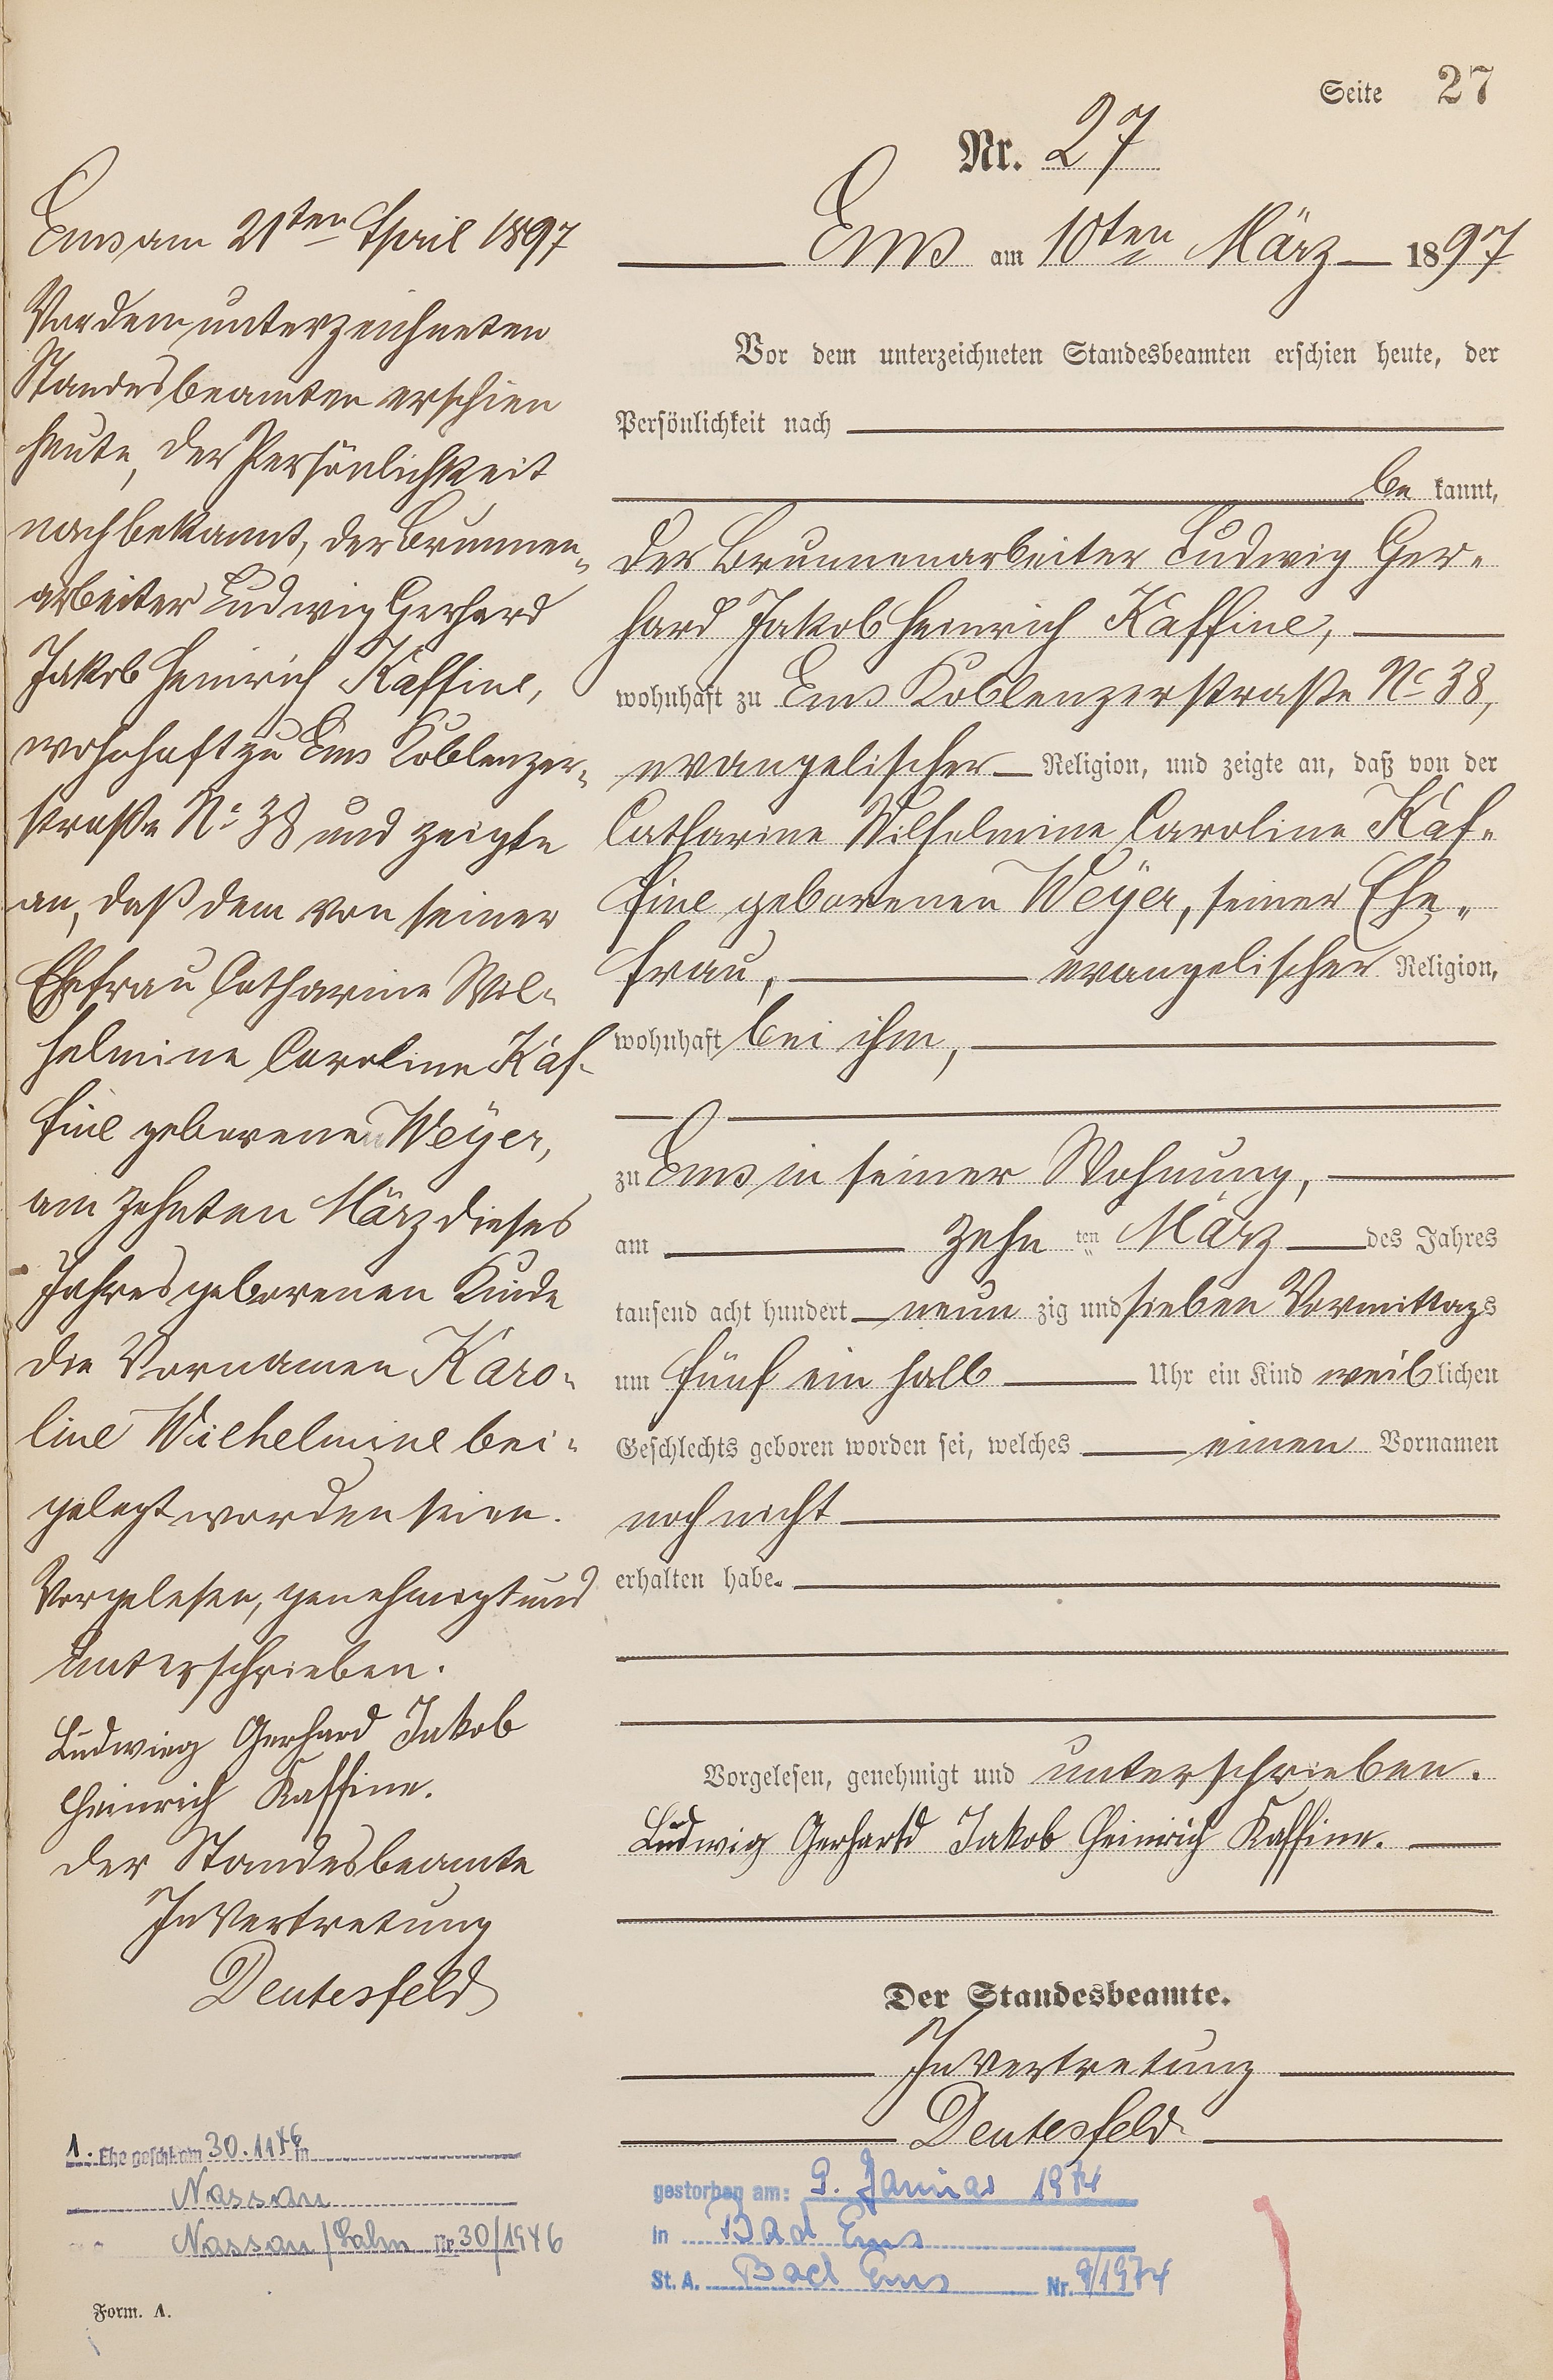 Seite 27
Nr. 27
Ems am 10ten März 1897
Vor dem unterzeichneten Standesbeamten erschien heute, der
Persönlichkeit nach
be kannt,
der Brunnenarbeiter Ludwig Ger-
hard Jakob Heinrich Kaffine,
wohnhaft zu Ems Koblenzerstraße No 38,
evangelischer Religion, und zeigte an, daß von der
Catharine Wilhelmine Caroline Kaf-
fine geborenen Weyer, seiner Ehe-
frau, evangelischer Religion,
wohnhaft bei ihm,
zu Ems in seiner Wohnung,
am zehn ten März des Jahres
tausend acht hundert neun zig und sieben Vormittags
um fünf ein halb Uhr ein Kind weiblichen
Geschlechts geboren worden sei, welches einen Vornamen
noch nicht
erhalten habe.
Vorgelesen, genehmigt und unterschrieben.
Ludwig Gerhard Jakob Heinrich Kaffine.
Der Standesbeamte.
In Vertretung
Deutesfeld
Ems am 21ten April 1897
Vor dem unterzeichneten
Standesbeamten erschien
heute, der Persönlichkeit
nach bekannt, der Brunnen-
arbeiter Ludwig Gerhard
Jakob Heinrich Kaffine,
wohnhaft zu Ems Koblenzer-
straße No 38 und zeigte
an, daß dem von seiner
Ehefrau Catharine Wil-
helmine Caroline Kaf-
fine geborenen Weyer,
am zehnten März dieses
Jahres geborenen Kinde
die Vornamen Karo-
line Wilhelmine bei-
gelegt worden seien.
Vorgelesen, genehmigt und
unterschrieben.
Ludwig Gerhard Jakob
Heinrich Kaffine.
Der Standesbeamte
In Vertretung
Deutesfeld
1. Ehe geschl. am 30.11.46 in
Nassau
Nassau/Lahn Nr. 30/1946
gestorben am: 9. Januar 1974
in Bad Ems
St. A. Bad Ems Nr. 9/1974
Form. A.